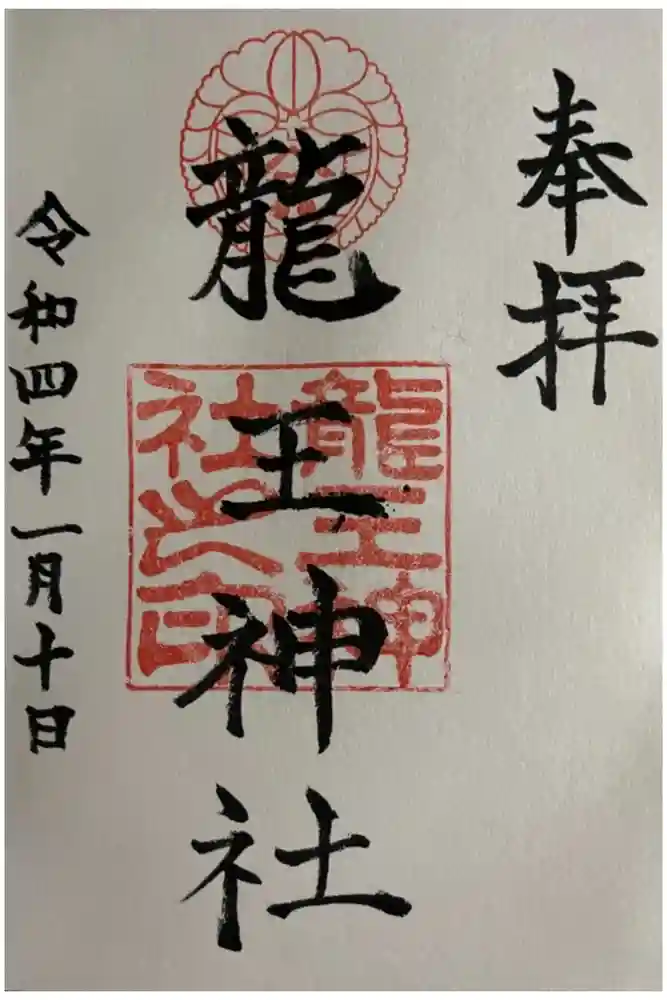 奉拝
龍王神社
龍王神
社之印
令和四年一月十日